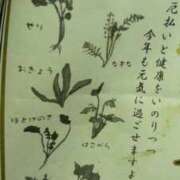 厄払いと健康をいのりつつ
今年も元気に過ごせますよ
せり
なずな
おぎょう
ほとけのざ
はこべら